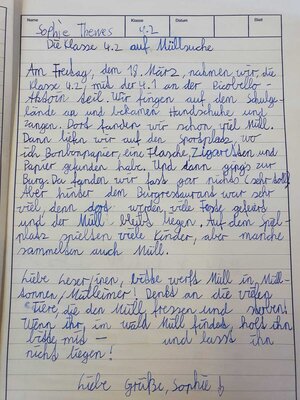 Name Klasse Datum Blatt
Sophie Thewes 4.2
Die Klasse 4.2 auf Müllsuche
Am Freitag, dem 18. März, nahmen wir, die
Klasse 4.2 mit der 4.1 an der Picobello-
Aktion teil. Wir fingen auf dem Schulge-
lände an und bekamen Handschuhe und
Zangen. Dort fanden wir schon viel Müll.
Dann liefen wir auf den Sportplatz, wo
ich Bonbonpapier, eine Flasche, Zigaretten und
Papier gefunden habe. Und dann gings zur
Burg. Da fanden wir fast gar nichts (sehr toll)
Aber hinter dem Bürgerhaus war sehr
viel, denn dort werden viele Feste gefeiert
und der Müll bleibt liegen. Auf dem Spiel-
platz spielten viele Kinder, aber manche
sammelten auch Müll.
Liebe Leser/inen, bitte werft Müll in Müll-
tonnen/Mülleimer. Denkt an die vielen
Tiere, die den Müll fressen und sterben!
Wenn ihr im Wald Müll findet, holt ihn
bitte mit und lasst ihn
nicht liegen!
Liebe Grüße, Sophie